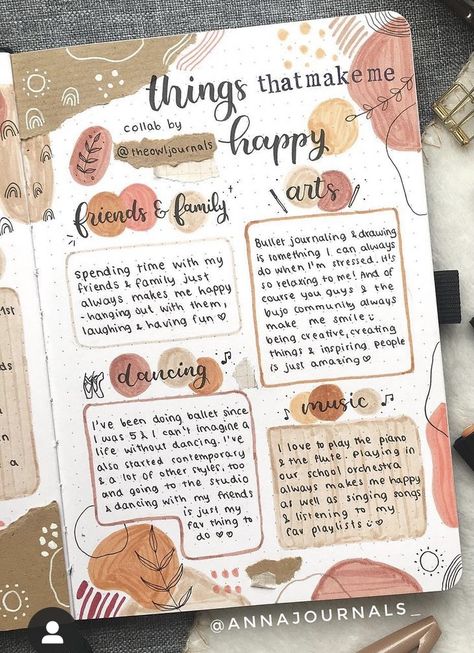 things that make me
happy
collab by
@theowljournals
friends & family
spending time with my
friends & family just
always makes me happy
- hanging out with them,
laughing & having fun ♡
arts
Bullet journaling & drawing
is something I can always
do when I'm stressed. It's
so relaxing to me! And of
course you guys & the
bujo community always
make me smile :)
being creative, creating
things & inspiring people
is just amazing ♡
dancing
I've been doing ballet since
I was 5 & I can't imagine a
life without dancing. I've
also started contemporary
& a lot of other styles, too
and going to the studio
& dancing with my friends
is just my
fav thing to
do ♡♡
music
I love to play the piano
& the flute. Playing in
our school orchestra
always makes me happy
as well as singing songs
& listening to my
fav playlists :) ♡
@ANNAJOURNALS_